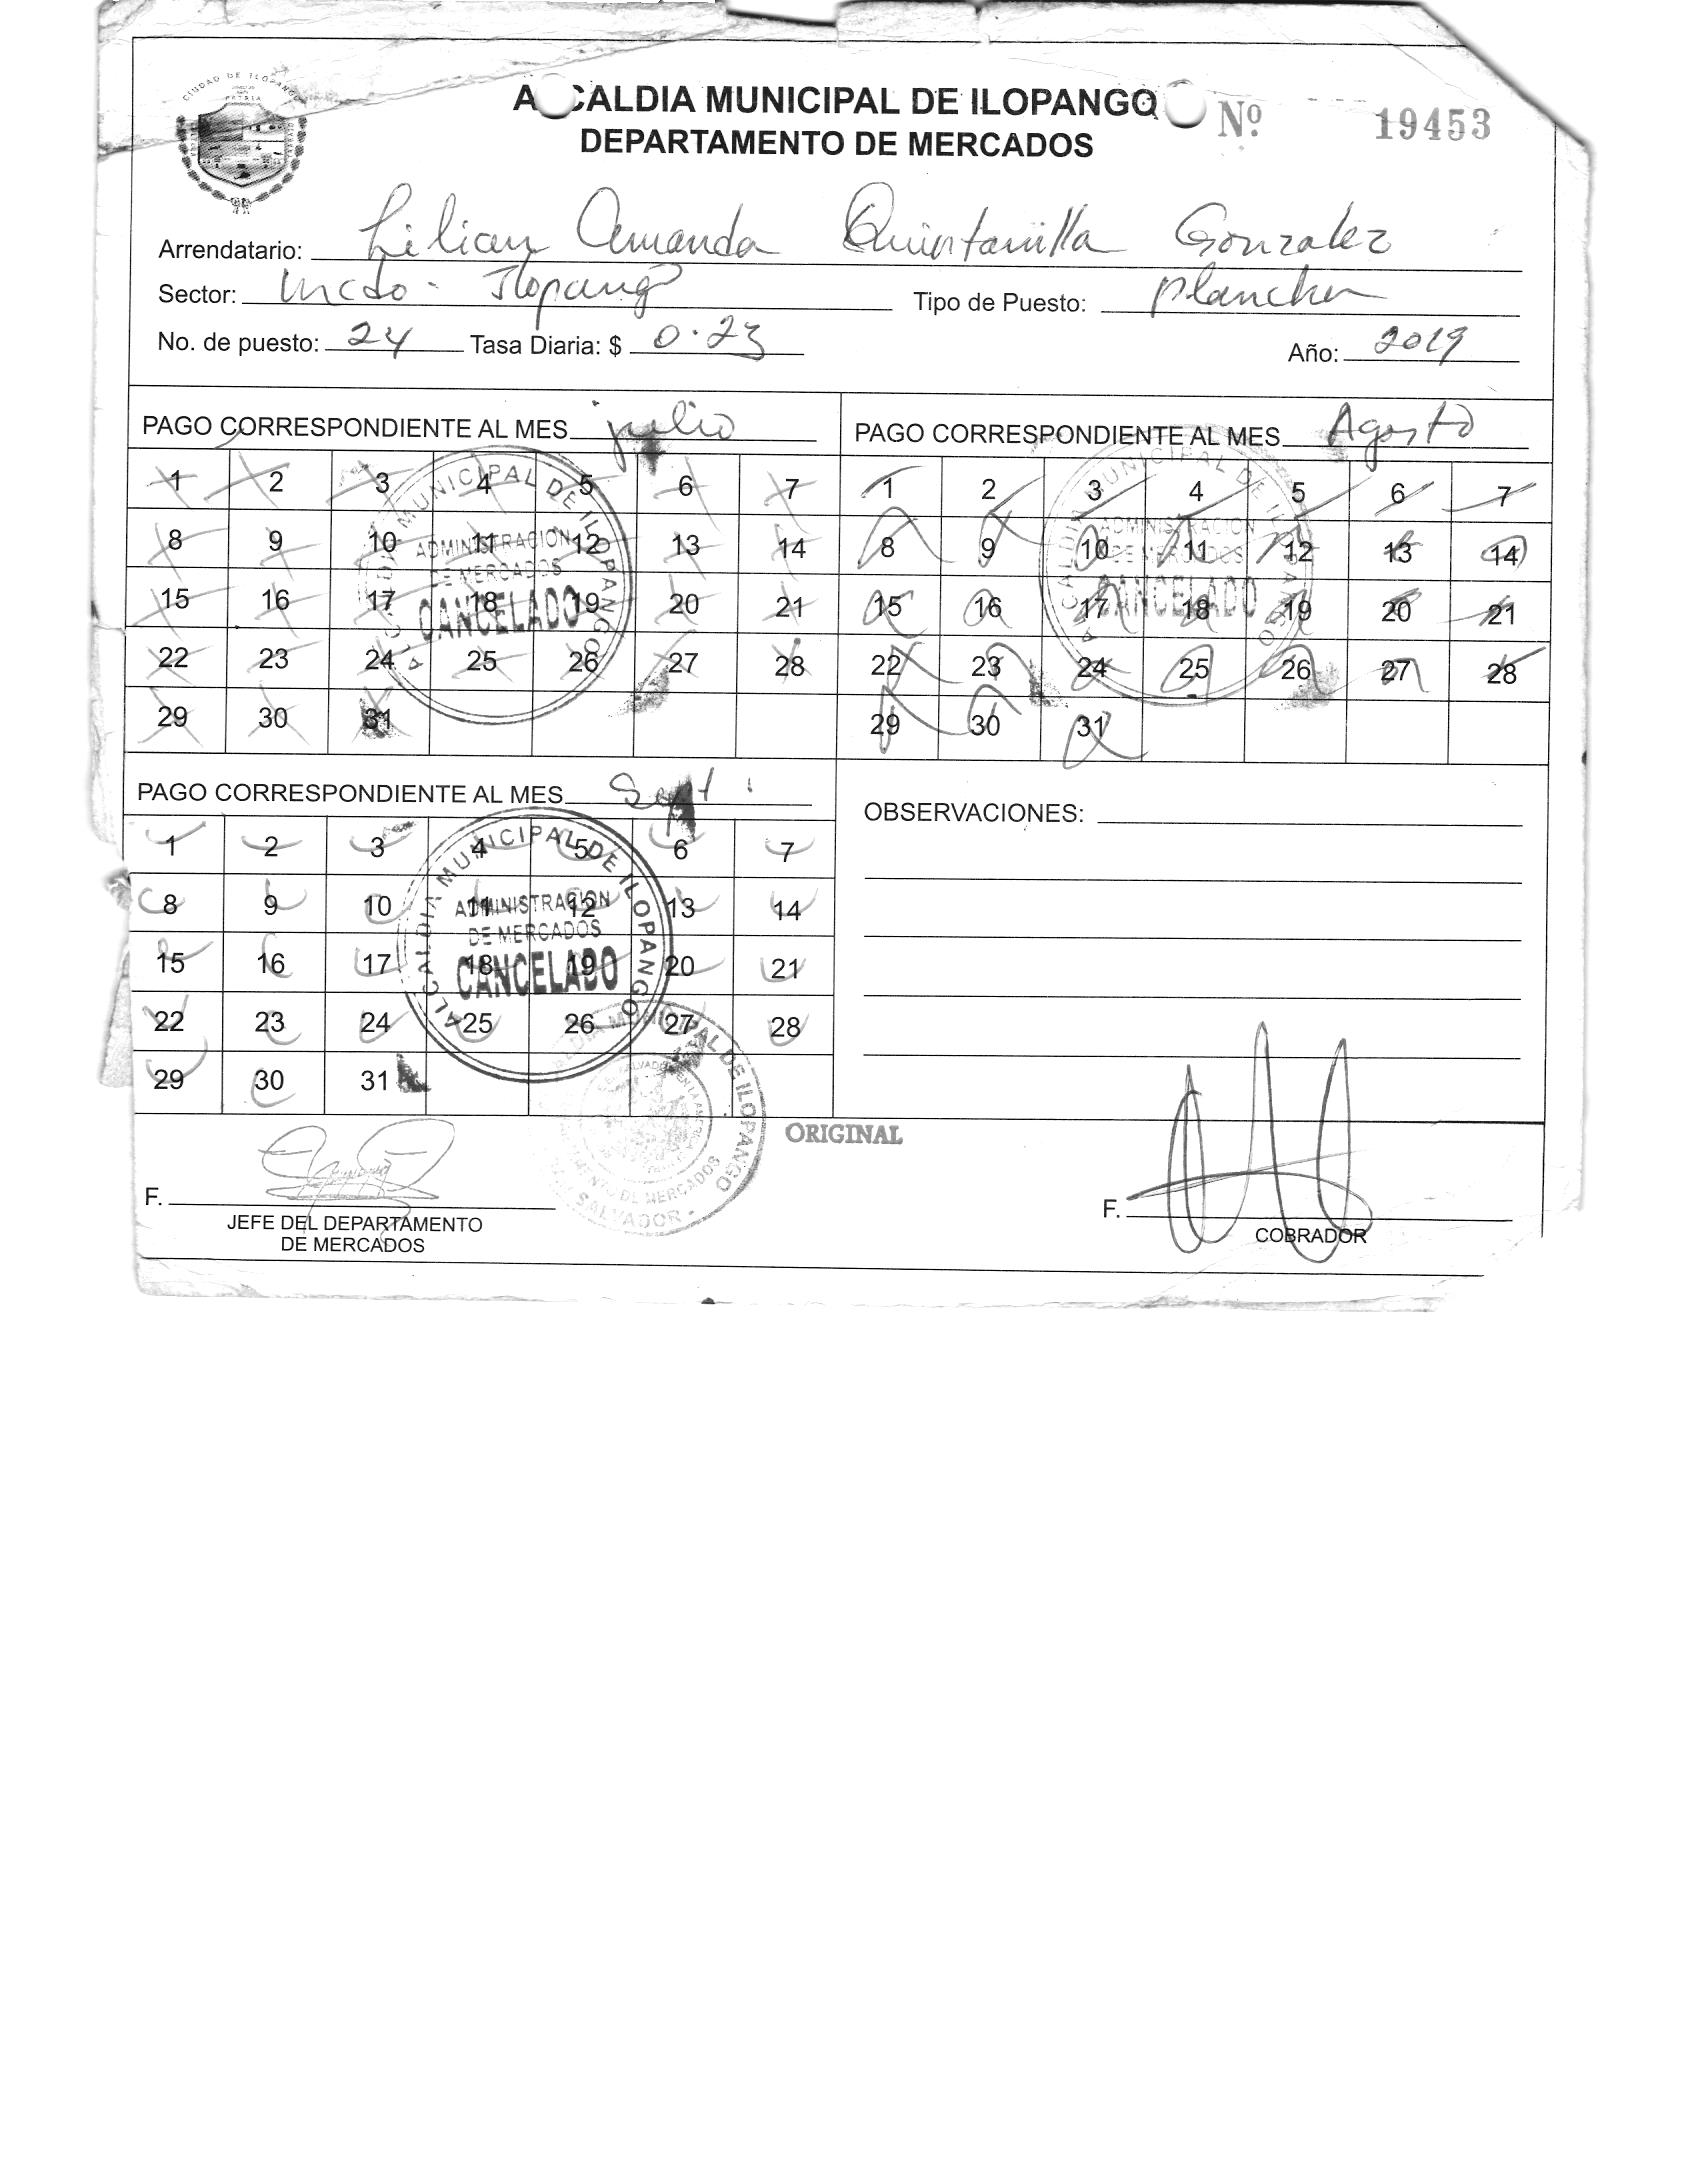 CIUDAD DE ILOPANGO
ALCALDIA MUNICIPAL DE ILOPANGO
DEPARTAMENTO DE MERCADOS
Nº 19453
Arrendatario: Lilian Amanda Quintanilla Gonzalez
Sector: Mcdo - Ilopango Tipo de Puesto: plancher
No. de puesto: 24 Tasa Diaria: $ 0.23 Año: 2019
PAGO CORRESPONDIENTE AL MES julio
1 2 3 4 5 6 7
8 9 10 11 12 13 14
15 16 17 18 19 20 21
22 23 24 25 26 27 28
29 30 31
ALCALDIA MUNICIPAL DE ILOPANGO
ADMINISTRACION
DE MERCADOS
CANCELADO
PAGO CORRESPONDIENTE AL MES Agosto
1 2 3 4 5 6 7
8 9 10 11 12 13 14
15 16 17 18 19 20 21
22 23 24 25 26 27 28
29 30 31
ALCALDIA MUNICIPAL DE ILOPANGO
ADMINISTRACION
DE MERCADOS
CANCELADO
PAGO CORRESPONDIENTE AL MES Sept
1 2 3 4 5 6 7
8 9 10 11 12 13 14
15 16 17 18 19 20 21
22 23 24 25 26 27 28
29 30 31
ALCALDIA MUNICIPAL DE ILOPANGO
ADMINISTRACION
DE MERCADOS
CANCELADO
OBSERVACIONES:
MUNICIPAL DE ILOPANGO
DE MERCADOS
SALVADOR
ORIGINAL
F.
JEFE DEL DEPARTAMENTO
DE MERCADOS
F.
COBRADOR